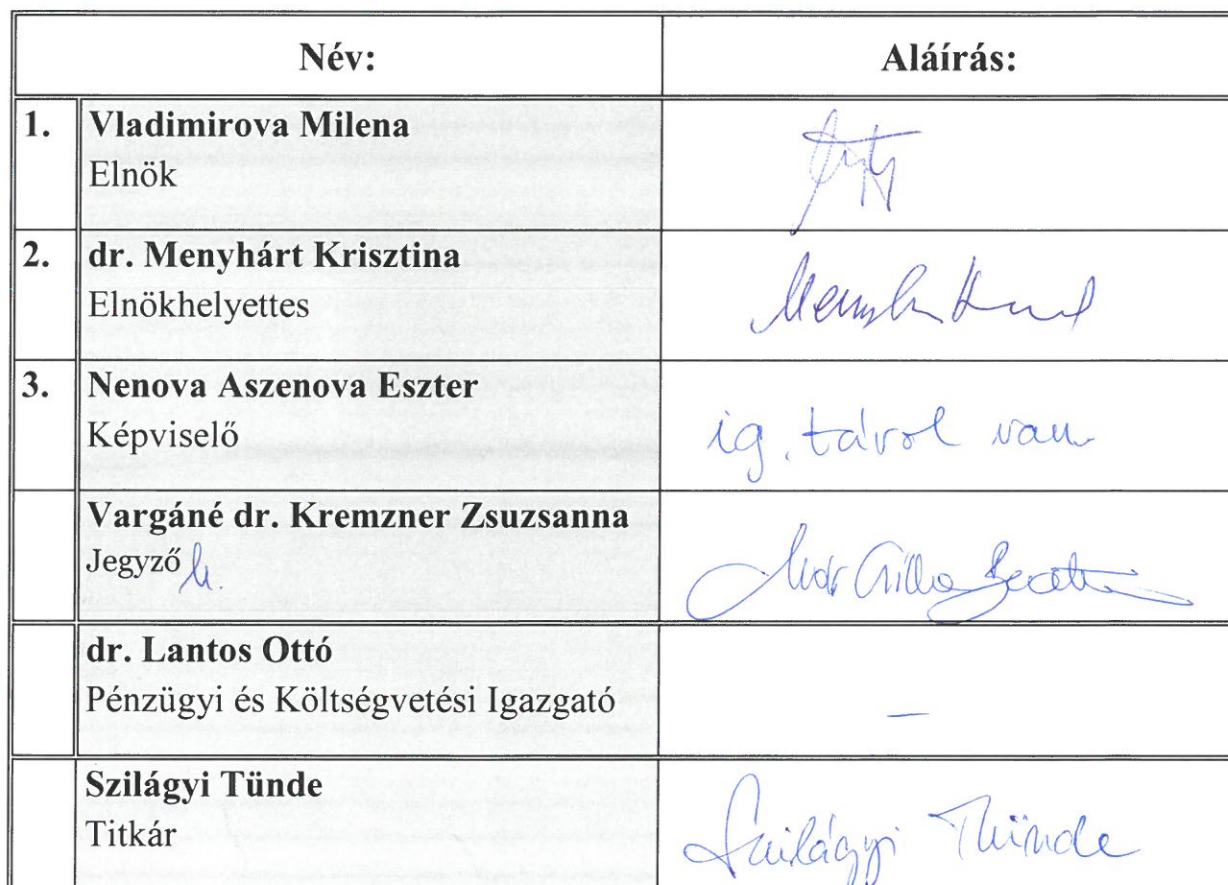 Név: Aláírás:
1. Vladimirova Milena
Elnök
2. dr. Menyhárt Krisztina
Elnökhelyettes
3. Nenova Aszenova Eszter
Képviselő
ig. távol van
Vargáné dr. Kremzner Zsuzsanna
Jegyző h.
dr. Lantos Ottó
Pénzügyi és Költségvetési Igazgató
–
Szilágyi Tünde
Titkár
Szilágyi Tünde